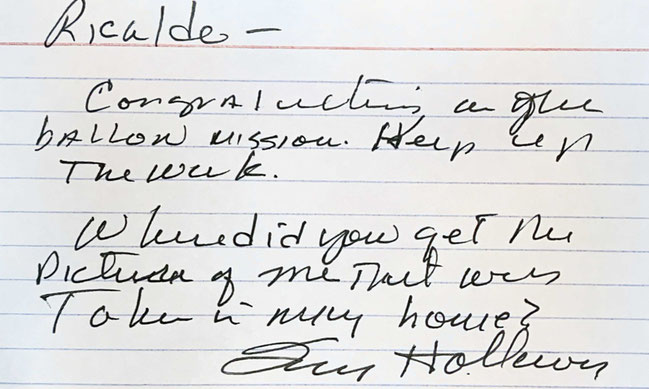 Ricaldo —
Congratulations on your
ballon mission. Keep up
The work.
Where did you get the
Picture of me that was
Taken in my home?